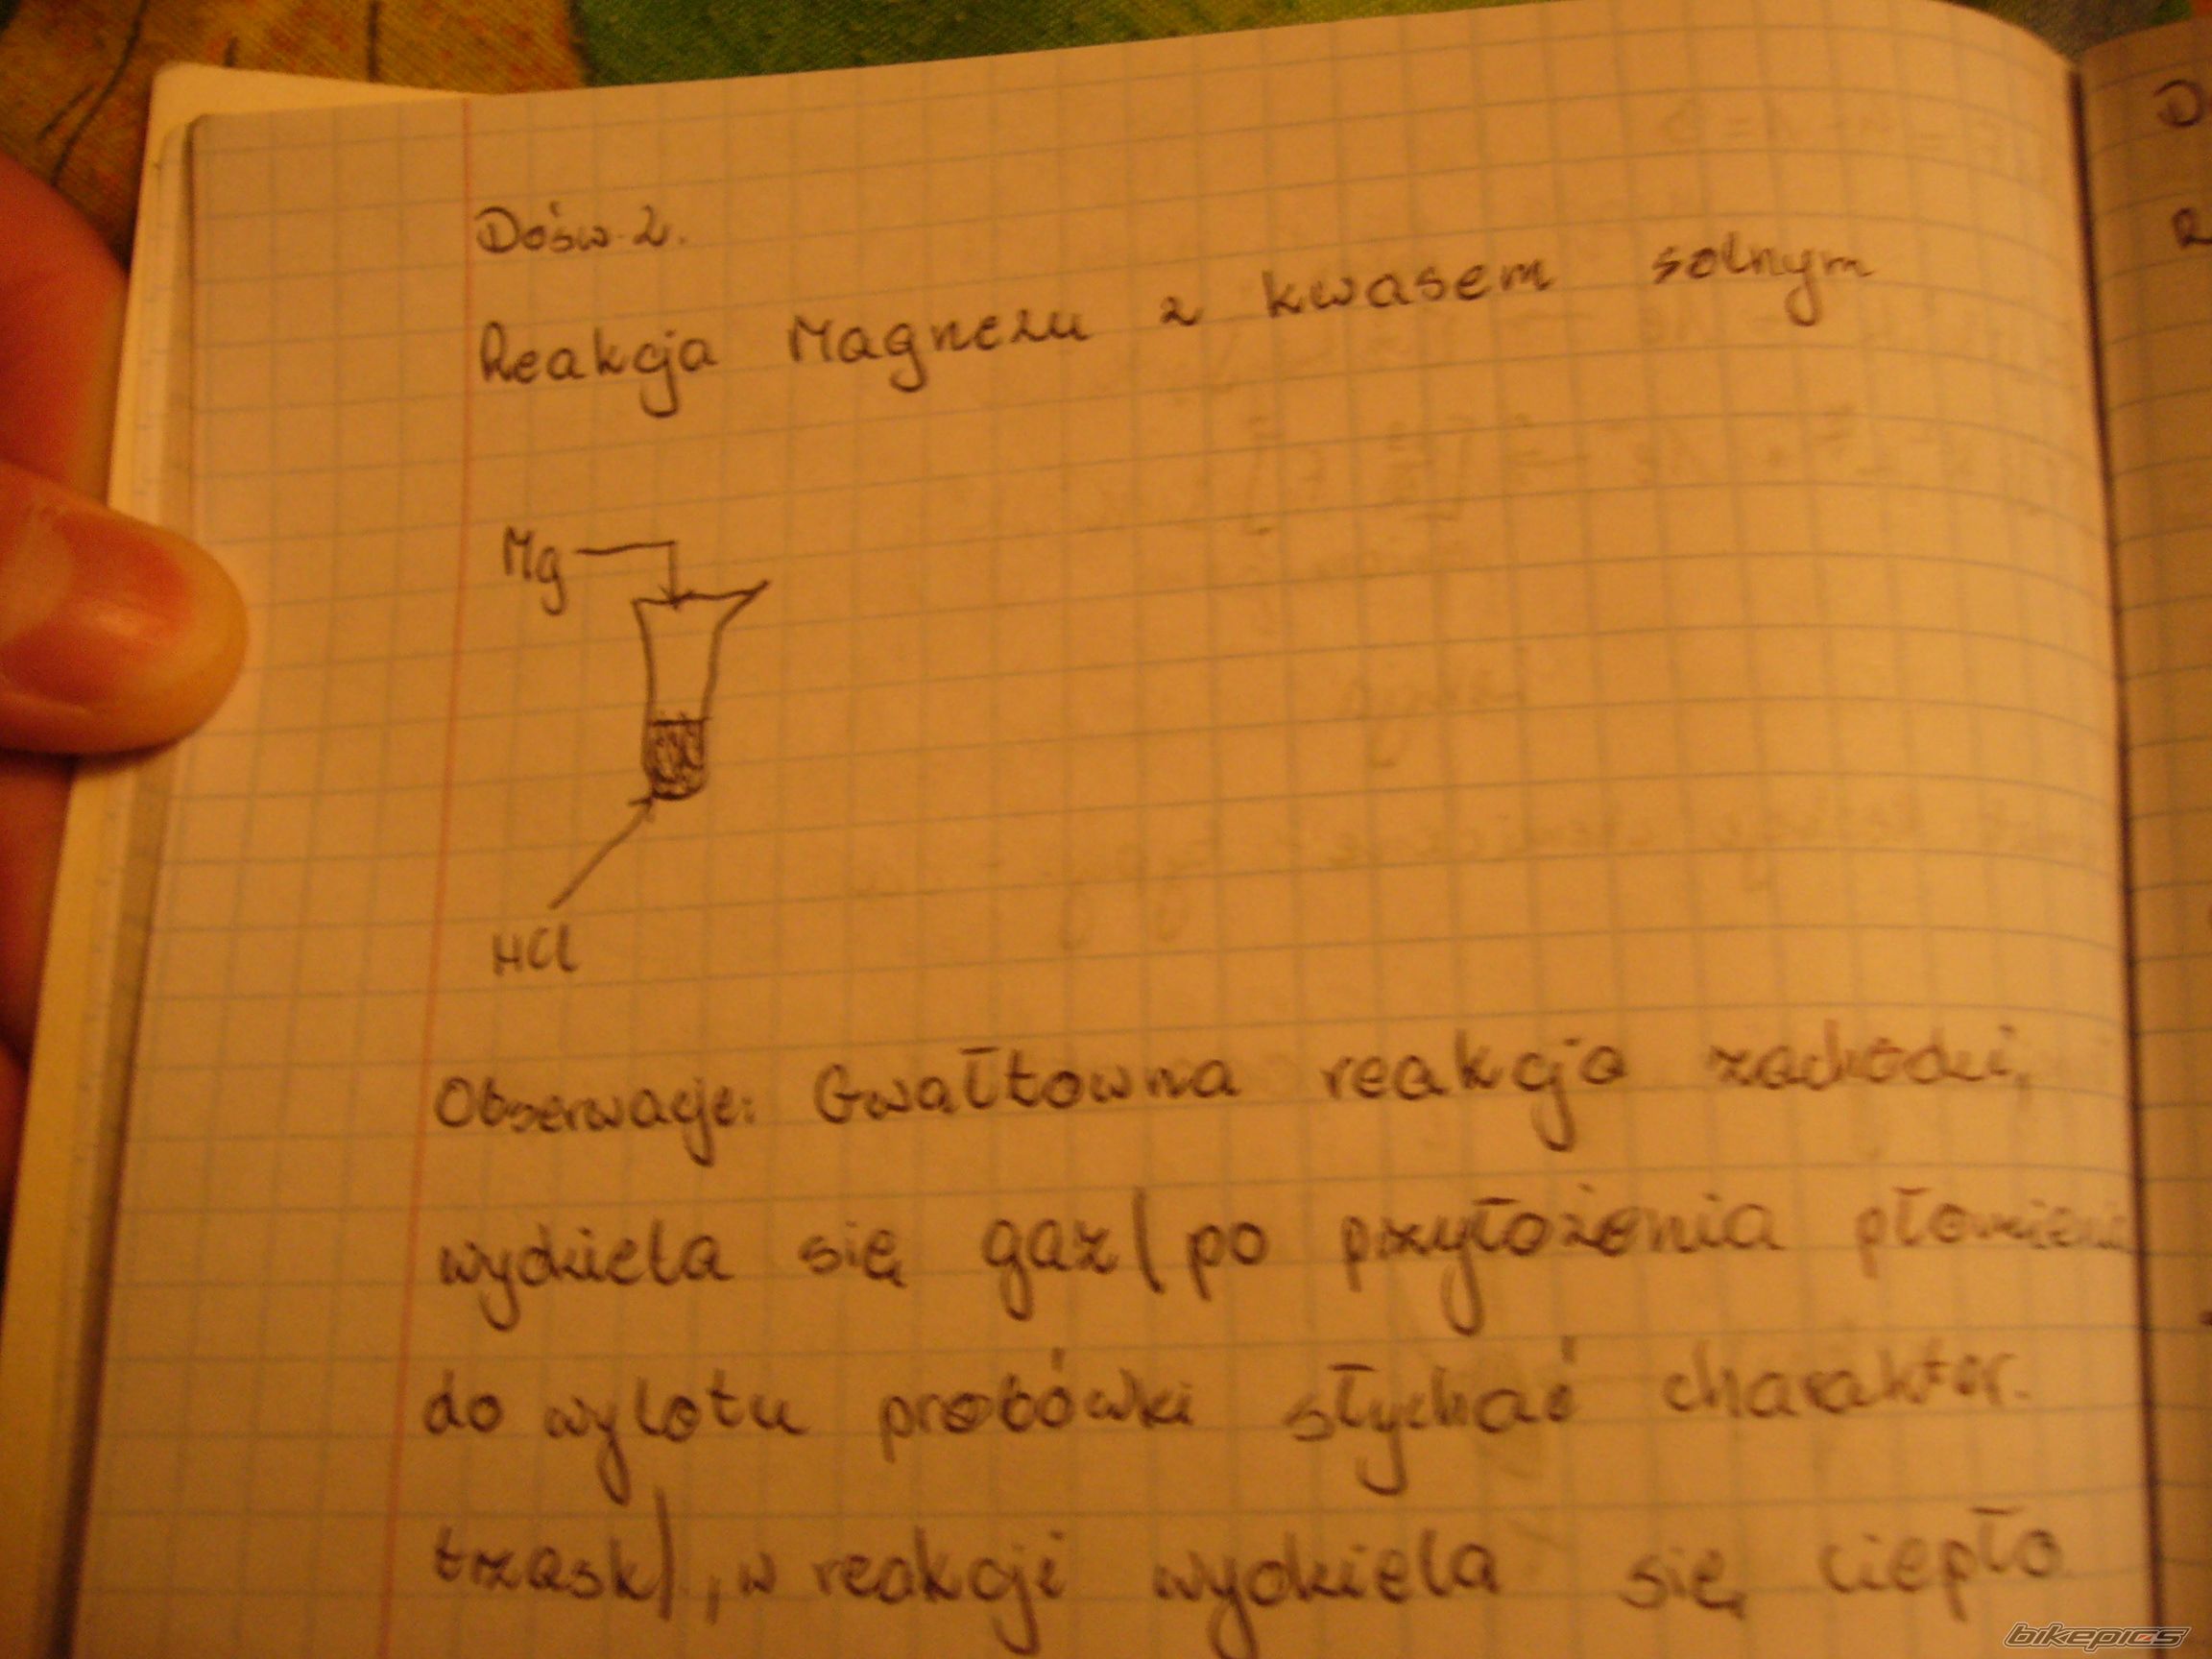 Dośw. 2.
Reakcja Magnezu z kwasem solnym
Mg
HCl
Obserwacje: Gwałtowna reakcja zachodzi,
wydziela się gaz (po przyłożenia płomienia
do wylotu probówki słychać charakter.
trzask), w reakcji wydziela się ciepło
bikepics